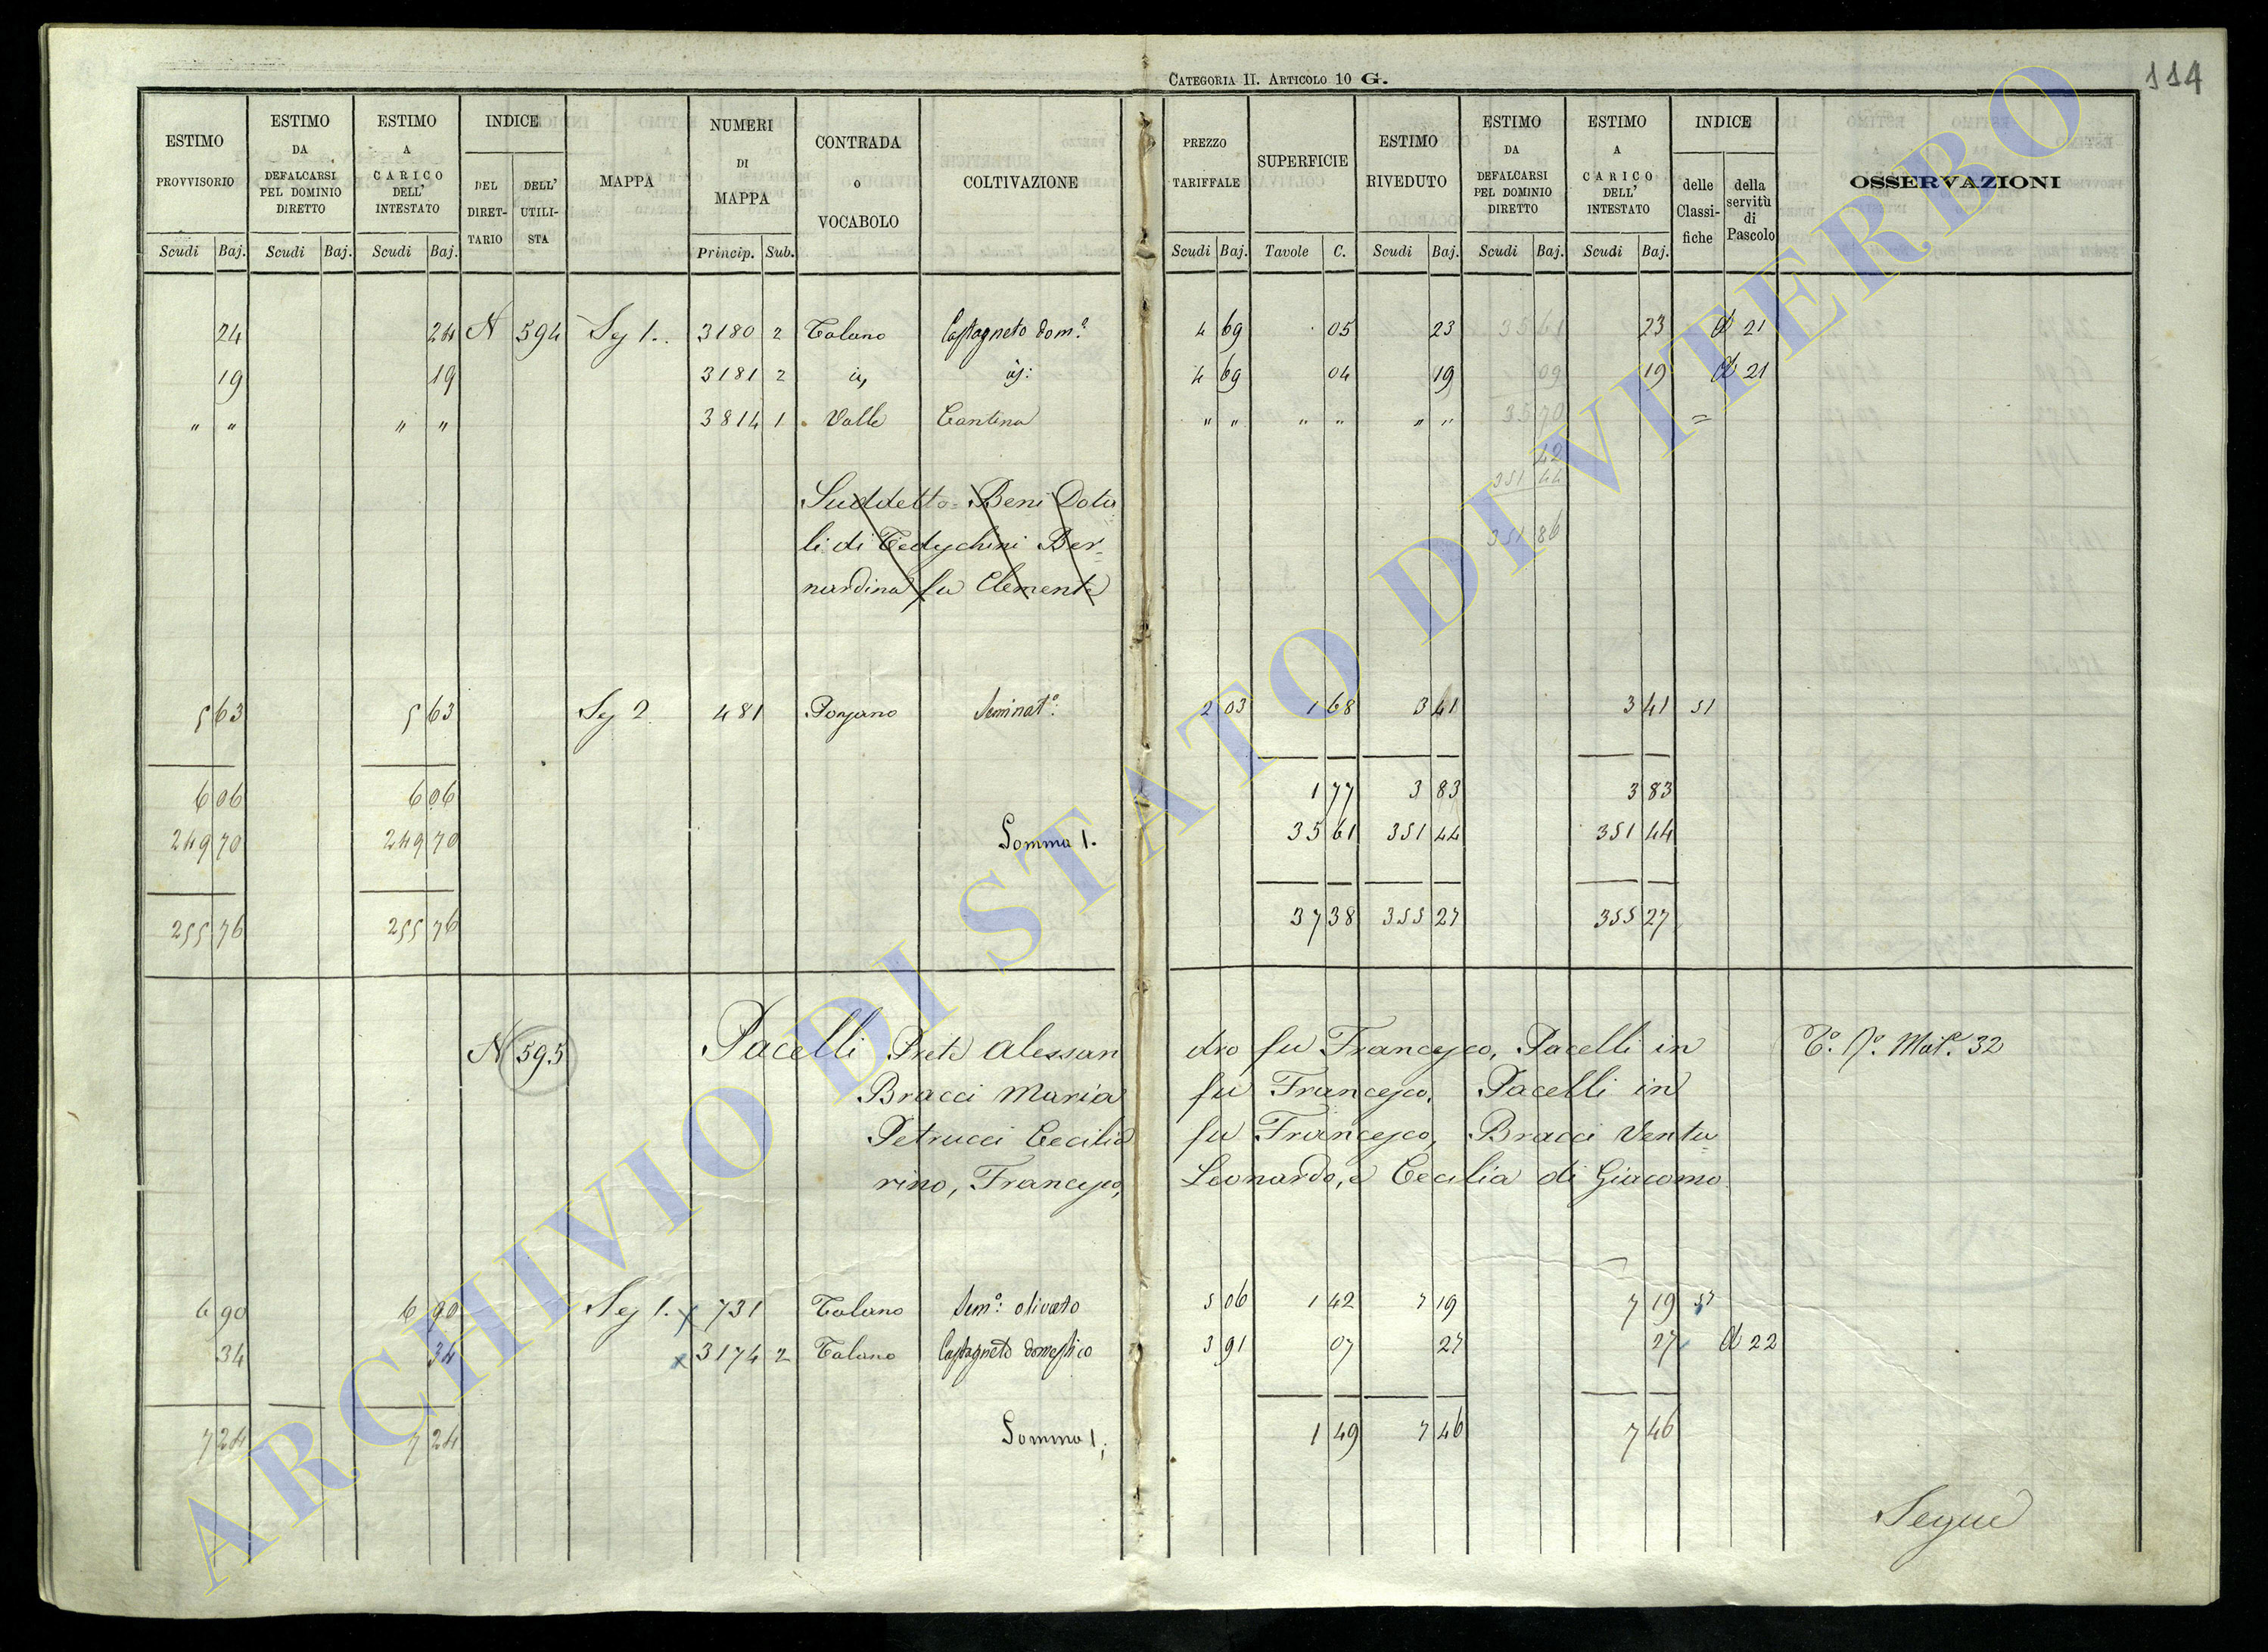 CATEGORIA II. ARTICOLO 10 G.
114
ESTIMO PROVVISORIO Scudi Baj.
ESTIMO DA DEFALCARSI PEL DOMINIO DIRETTO Scudi Baj.
ESTIMO A CARICO DELL' INTESTATO Scudi Baj.
INDICE DEL DIRETTARIO DELL' UTILISTA
MAPPA
NUMERI DI MAPPA Princip. Sub.
CONTRADA O VOCABOLO
COLTIVAZIONE
PREZZO TARIFFALE Scudi Baj.
SUPERFICIE Tavole C.
ESTIMO RIVEDUTO Scudi Baj.
ESTIMO DA DEFALCARSI PEL DOMINIO DIRETTO Scudi Baj.
ESTIMO A CARICO DELL' INTESTATO Scudi Baj.
INDICE delle Classifiche della servitù di Pascolo
OSSERVAZIONI
24 24 N 594 Sez 1. 3180 2 Talano Castagneto dom.º 4 69 05 23 35 61 23 21
19 19 3181 2 id. id: 4 69 04 19 09 19 21
" " " " 3814 1 Valle Cantina " " " " " " 35 70 =
42
351 44
Suddetto = Beni Dota
351 86
li di Tedeschini Ber-
nardina fu Clemente
5 63 5 63 Sez 2. 481 Ponzano Seminatº: 2 03 1 68 3 41 3 41 51
6 06 6 06 1 77 3 83 3 83
249 70 249 70 Somma 1. 35 61 351 44 351 44
255 76 255 76 37 38 355 27 355 27
N 595 Pacelli Prete Alessan dro fu Francesco, Pacelli in Mat. 32
Bracci Maria fu Francesco, Pacelli in
Petrucci Cecilia fu Francesco, Bracci Ventu
rino, Francesco, Leonardo, e Cecilia di Giacomo.
6 90 6 90 Sez 1. x 731 Talano Semº: olivato 5 06 1 42 7 19 7 19 57
34 34 x 3174 2 Talano Castagneto domestico 3 91 07 27 27 22
7 24 7 24 Somma 1, 1 49 7 46 7 46
Segue
ARCHIVIO DI STATO DI VITERBO